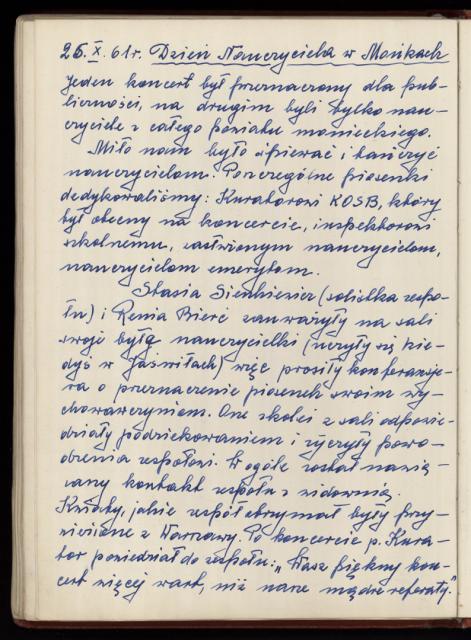 25.X.61r. Dzień Nauczyciela w Mońkach
Jeden koncert był przeznaczony dla pub-
liczności, na drugim byli tylko nau-
czyciele z całego powiatu monieckiego.
Miło nam było śpiewać i tańczyć
nauczycielom. Poszczególne piosenki
dedykowaliśmy: Kuratorowi KOSB, który
był obecny na koncercie, inspektorowi
szkolnemu, zasłużonym nauczycielom,
nauczycielom emerytom.
Stasia Sienkiewicz (solistka zespo-
łu) i Renia Bierć zauważyły na sali
swoje byłe nauczycielki (uczyły się kie-
dyś w Jaświłach) więc prosiły konferansje-
ra o przeznaczenie piosenek swoim wy-
chowawczyniom. One z kolei z sali odpowie-
działy podziękowaniem i życzyły powo-
dzenia zespołowi. W ogóle został nawią-
zany kontakt zespołu z widownią.
Kwiaty, jakie zespół otrzymał były przy-
wiezione z Warszawy. Po koncercie p. Kura-
tor powiedział do zespołu: „Wasz piękny kon-
cert więcej wart, niż nasze mądre referaty."